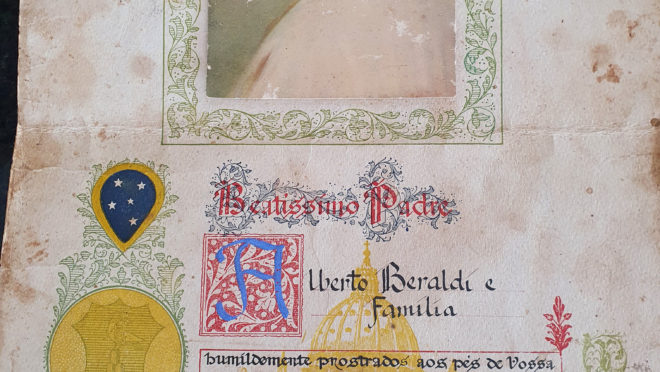 Beatissimo Padre
Alberto Beraldi e
Familia
humildemente prostrados aos pés de Vossa